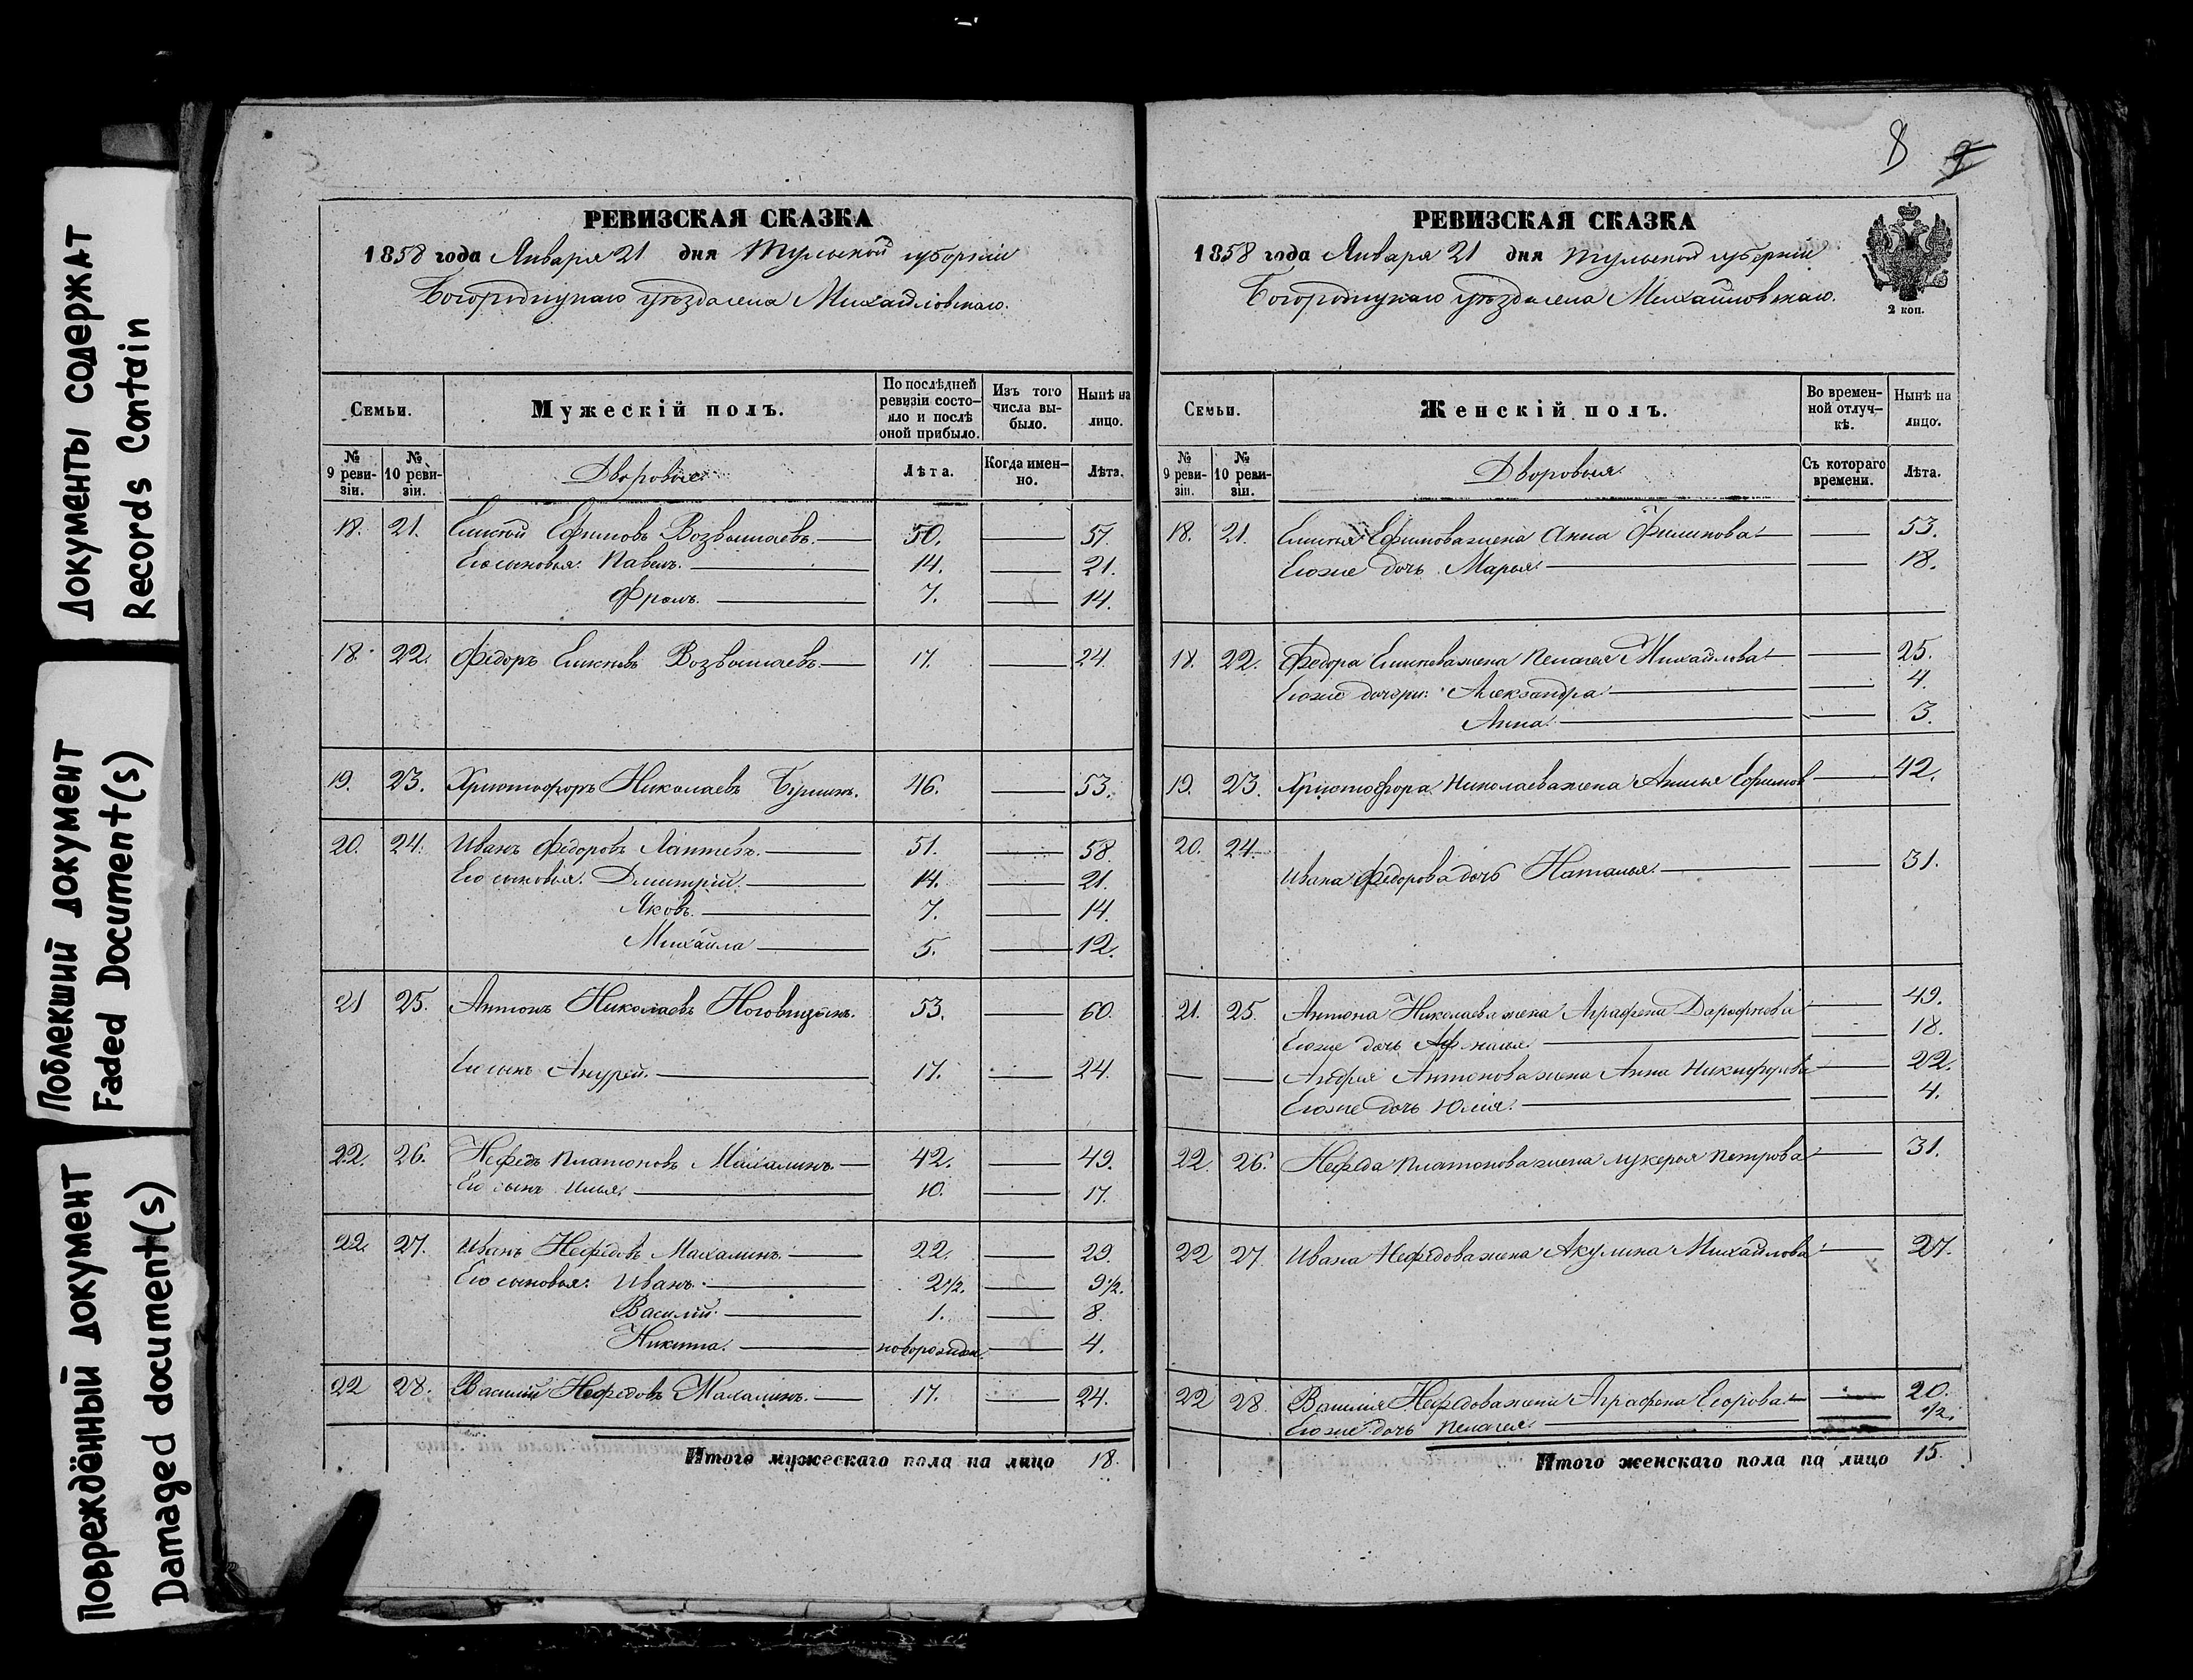 Документы содержат
Records Contain
Поблекший документ
Faded Document(s)
Повреждённый документ
Damaged document(s)
РЕВИЗСКАЯ СКАЗКА
1858 года Января 21 дня Тульской губерніи
Богородицкаго уѣзда села Михайловскаго.
Семьи.
Мужескій полъ.
По послѣдней ревизіи состояло и послѣ оной прибыло.
Изъ того числа выбыло.
Нынѣ на лицо.
№ 9 ревизіи.
№ 10 ревизіи.
Дворовые.
Лѣта.
Когда именно.
Лѣта.
18. 21. Ефимовъ Возвышаевъ. 50. 57.
Его сыновья: Павелъ. 14. 21.
Фролъ. 7. 14.
18. 22. Федоръ Возвышаевъ. 17. 24.
19. 23. Христофоръ Николаевъ 46. 53.
20. 24. Иванъ Федоровъ Лаптевъ. 51. 58.
Его сыновья: Дмитрій. 14. 21.
Яковъ. 7. 14.
Михайла 5. 12.
21 25. Антонъ Николаевъ Ноговицынъ. 53. 60.
Его сынъ Андрей. 17. 24.
22. 26. Нефедъ Платоновъ Махалинъ. 42. 49.
Его сынъ Илья. 10. 17.
22. 27. Иванъ Нефедовъ Махалинъ. 22. 29.
Его сыновья: Иванъ. 2 1/2. 9 1/2.
Василій. 1. 8.
Никита. новорожден. 4.
22 28. Василій Нефедовъ Махалинъ. 17. 24.
Итого мужескаго пола на лицо 18.
8 7
РЕВИЗСКАЯ СКАЗКА
1858 года Января 21 дня Тульской губерніи
Богородицкаго уѣзда села Михайловскаго.
2 коп.
Семьи.
Женскій полъ.
Во временной отлучкѣ.
Нынѣ на лицо.
№ 9 ревизіи.
№ 10 ревизіи.
Дворовыя.
Съ котораго времени.
Лѣта.
18. 21. Ефимова жена Анна Филипова 53.
Егоже дочь Марья. 18.
18. 22. Федора жена Пелагея Михайлова 25.
Егоже дочери: Александра 4.
Анна. 3.
19. 23. Христофора Николаева жена Ефимов 42.
20. 24. Ивана Федорова дочь Наталья. 31.
21. 25. Антона Николаева жена Аграфена 49.
Егоже дочь 18.
Андрея Антонова жена Анна Никифорова 22.
Егоже дочь Юлія. 4.
22. 26. Нефеда Платонова жена Лукерья Петрова 31.
22 27. Ивана Нефедова жена Акулина Михайлова 27.
22 28. Василія Нефедова жена Аграфена Егорова 20.
Егоже дочь Пелагея. 1/2.
Итого женскаго пола на лицо 15.